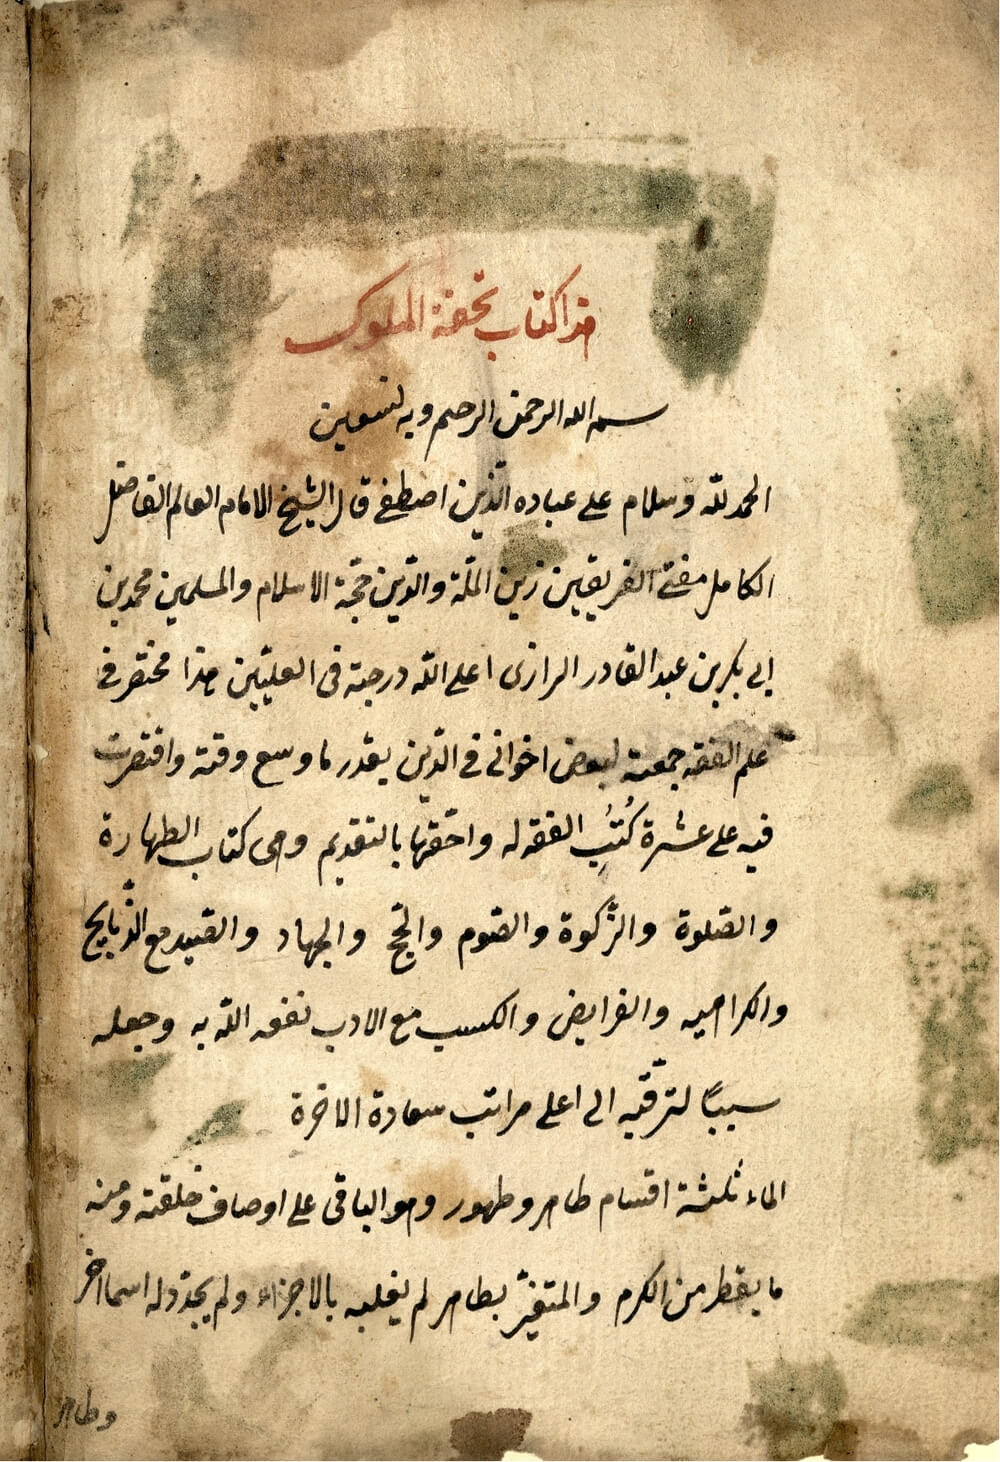 هذا كتاب تحفة الملوك
بسم الله الرحمن الرحيم وبه نستعين
الحمد لله وسلام على عباده الذين اصطفى قال الشيخ الامام العالم الفاضل
الكامل مفتى الفريقين زين الملة والدين حجة الاسلام والمسلمين محمد بن
ابى بكر بن عبد القادر الرازى اعلى الله درجته فى العليين هذا مختصر فى
علم الفقه جمعته لبعض اخوانى فى الدين بقدر ما وسع وقته واقتصرت
فيه على عشرة كُتُبٍ الفقه له واحقها بالتقديم وهى كتاب الطهارة
والصلوة والزكوة والصوم والحج والجهاد والصيد مع الذبايح
والكراهيه والفرايض والكسب مع الادب نفعه الله به وجعله
سببًا لترقيه الى اعلى مراتب سعادة الاخرة
الماء ثلثة اقسام طاهر وطهور وهو الباقى على اوصاف خلقته ومنه
ما يقطر من الكرم والمتغيّر بطاهر لم يغلبه بالاجزاء ولم يجدد له اسما اخر
وطاهر